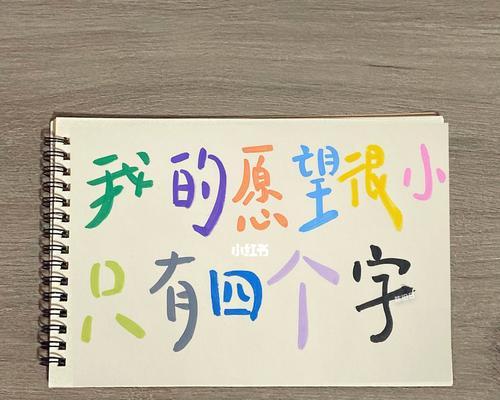 我的愿望很小
小红书
只有四个字